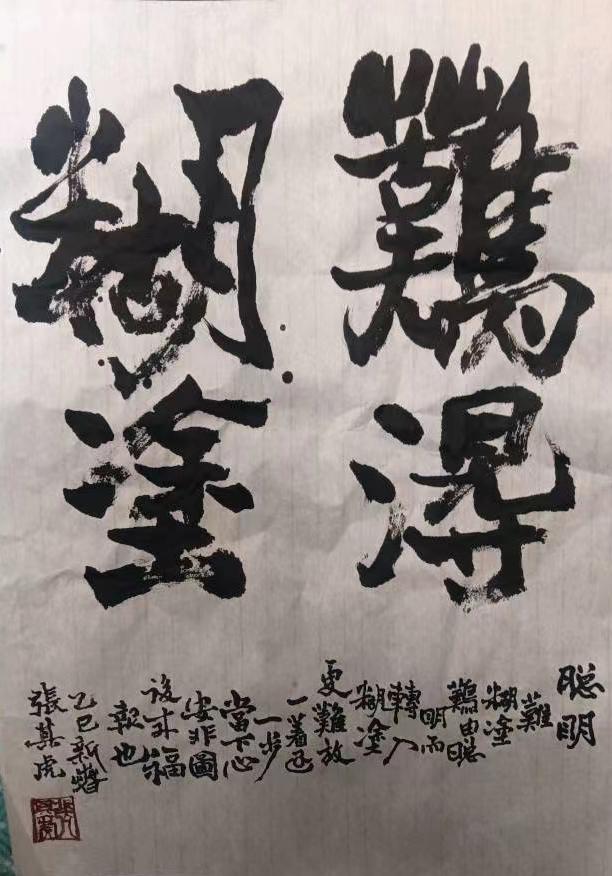 難得
糊塗
聰明
難
糊塗
難由聰
明而
轉入
糊塗
更難放
一着退
一步
當下心
安非圖
後來福
報也
乙巳新
張其虎